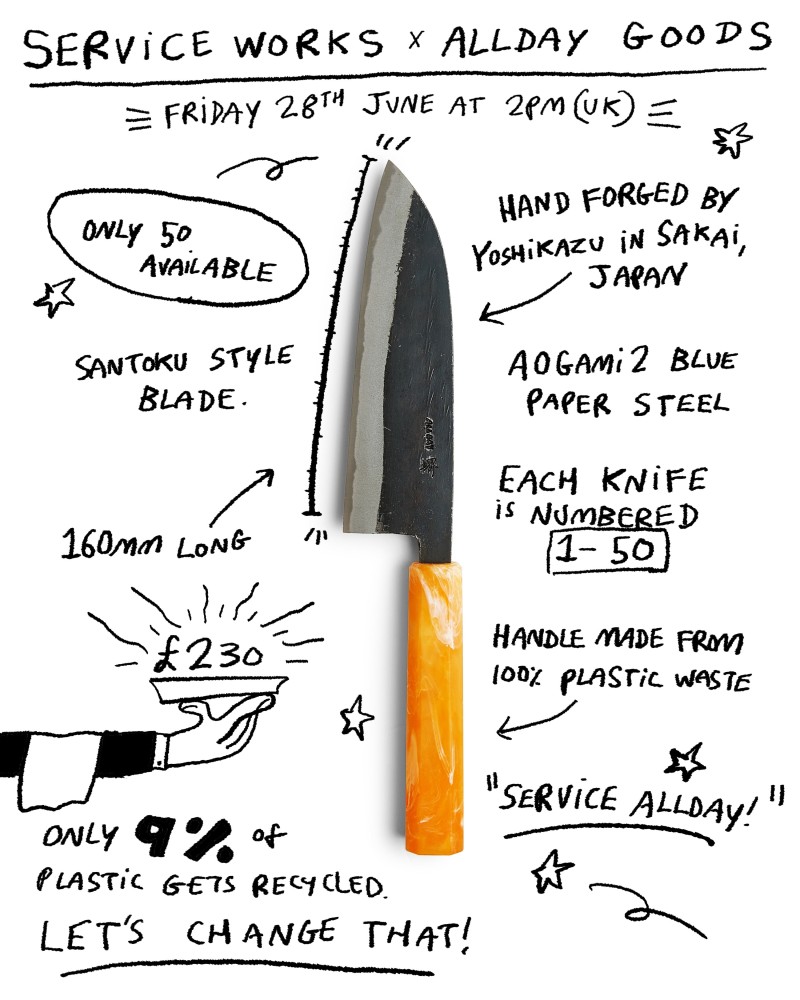 SERViCE WORKS x ALLDAY GOODS
FRiDAY 28TH JUNE AT 2PM (UK)
ONLY 50
AVAiLABLE
HAND FORGED BY
YOSHiKAZU iN SAKAi,
JAPAN
SANTOKU STYLE
BLADE.
AOGAMi 2 BLUE
PAPER STEEL
EACH KNiFE
iS NUMBERED
1-50
160mm LONG
£230
HANDLE MADE FROM
100% PLASTiC WASTE
"SERViCE ALLDAY!"
ONLY 9% of
PLASTiC GETS RECYCLED.
LET'S CHANGE THAT!